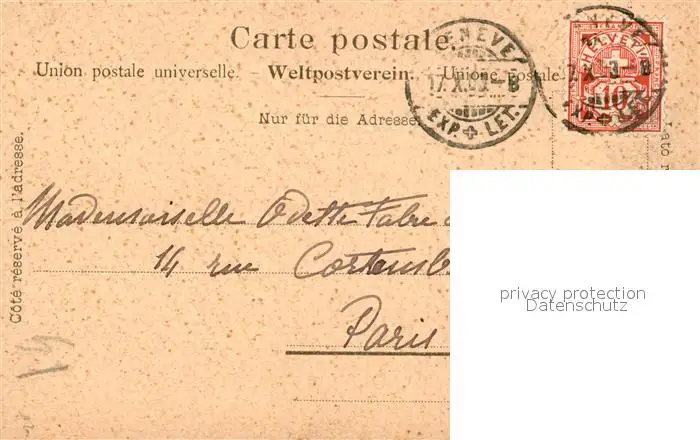 Carte postale.
Union postale universelle. – Weltpostverein. – Unione postale
Nur für die Adresse.
Côté réservé à l'adresse.
GENÈVE
17.X.
EXP + LET.
GENÈVE
17.X. 3 - B
EXP
HELVETIA
10
Mademoiselle Odette Fabre
14 rue
Paris
privacy protection
Datenschutz